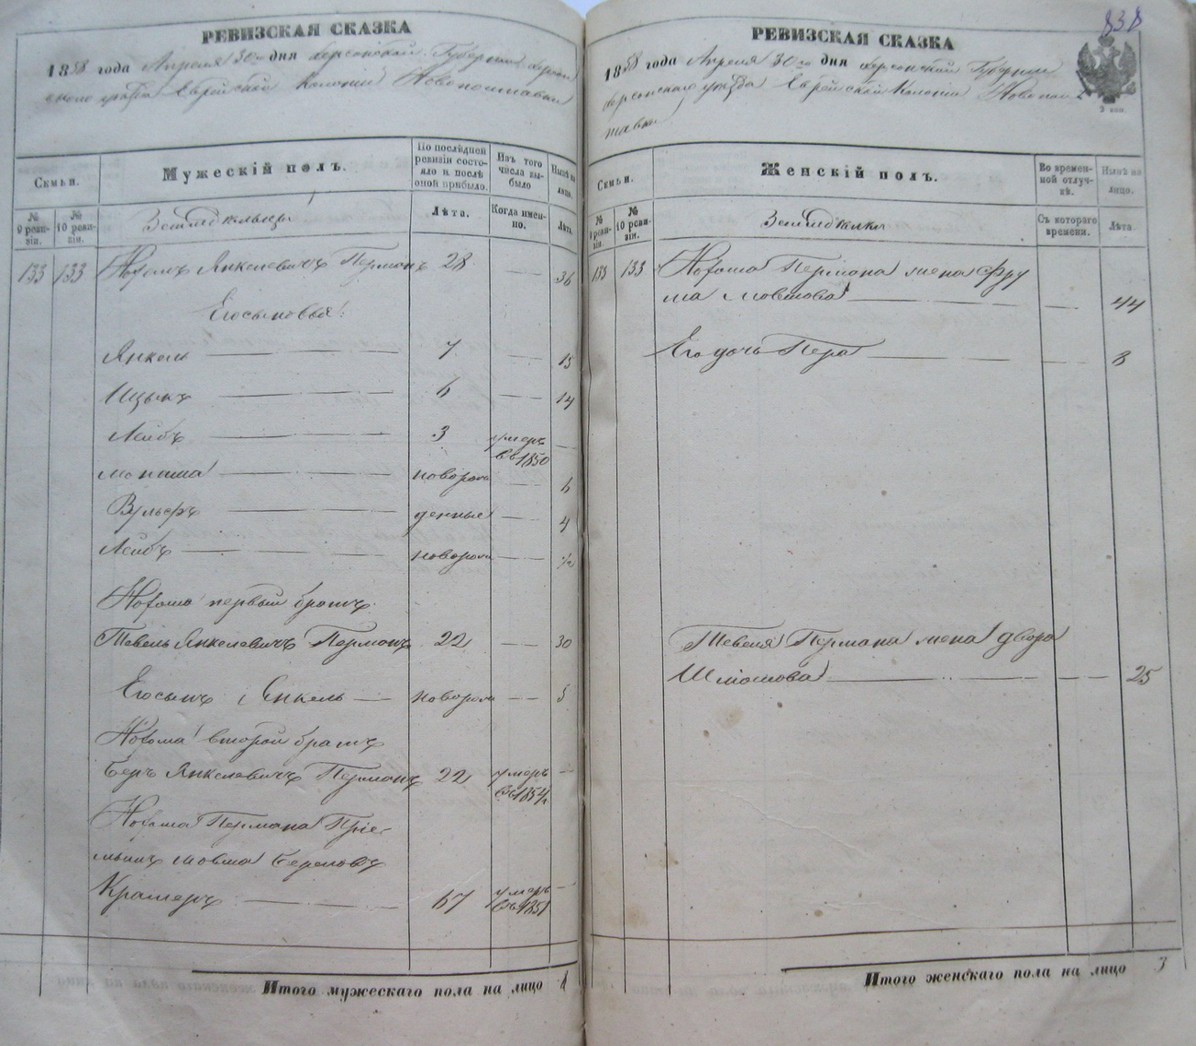 838
РЕВИЗСКАЯ СКАЗКА
1858 года Апреля 30го дня Херсонской Губернии Херсон
скаго уезда Еврейской Колонии Новополтавки
Семьи.
Мужескій полъ.
По послѣдней ревизіи состояло и послѣ оной прибыло.
Изъ того числа выбыло
Нынѣ на лицо.
№ 9 ревизіи.
№ 10 ревизіи.
Земледельцы
Лѣта.
Когда именно.
Лѣта.
133 133 Янкелевичъ Перманъ 28 — 36
Его сыновья:
Янкель 7 — 15
Ицык 6 — 14
Лейбъ 3 умеръ въ 1850 —
Монаша новорож — 6
Вульфъ денные — 4
Лейбъ новорож — ½
первый братъ
Тевель Янкелевичъ Перманъ 22 — 30
Его сынъ Янкель новорож — 5
второй братъ
Беръ Янкелевичъ Перманъ 22 умеръ —
Пермана Прiе-
мышъ Берковъ
Крамеръ 67 умеръ въ 1851 —
Итого мужескаго пола на лицо
РЕВИЗСКАЯ СКАЗКА
1858 года Апреля 30го дня Херсонской Губернии
Херсонскаго уезда Еврейской Колонии Новопол
тавки
Семьи.
Женскій полъ.
Во временной отлучкѣ.
Нынѣ на лицо.
№ 9 ревизіи.
№ 10 ревизіи.
Земледелки
Съ котораго времени.
Лѣта.
133 133 Пермана жена Фру
ма Мовшова — 44
Его дочь Пера — 8
Тевеля Пермана жена Двора
Шлiомова — 25
Итого женскаго пола на лицо 3